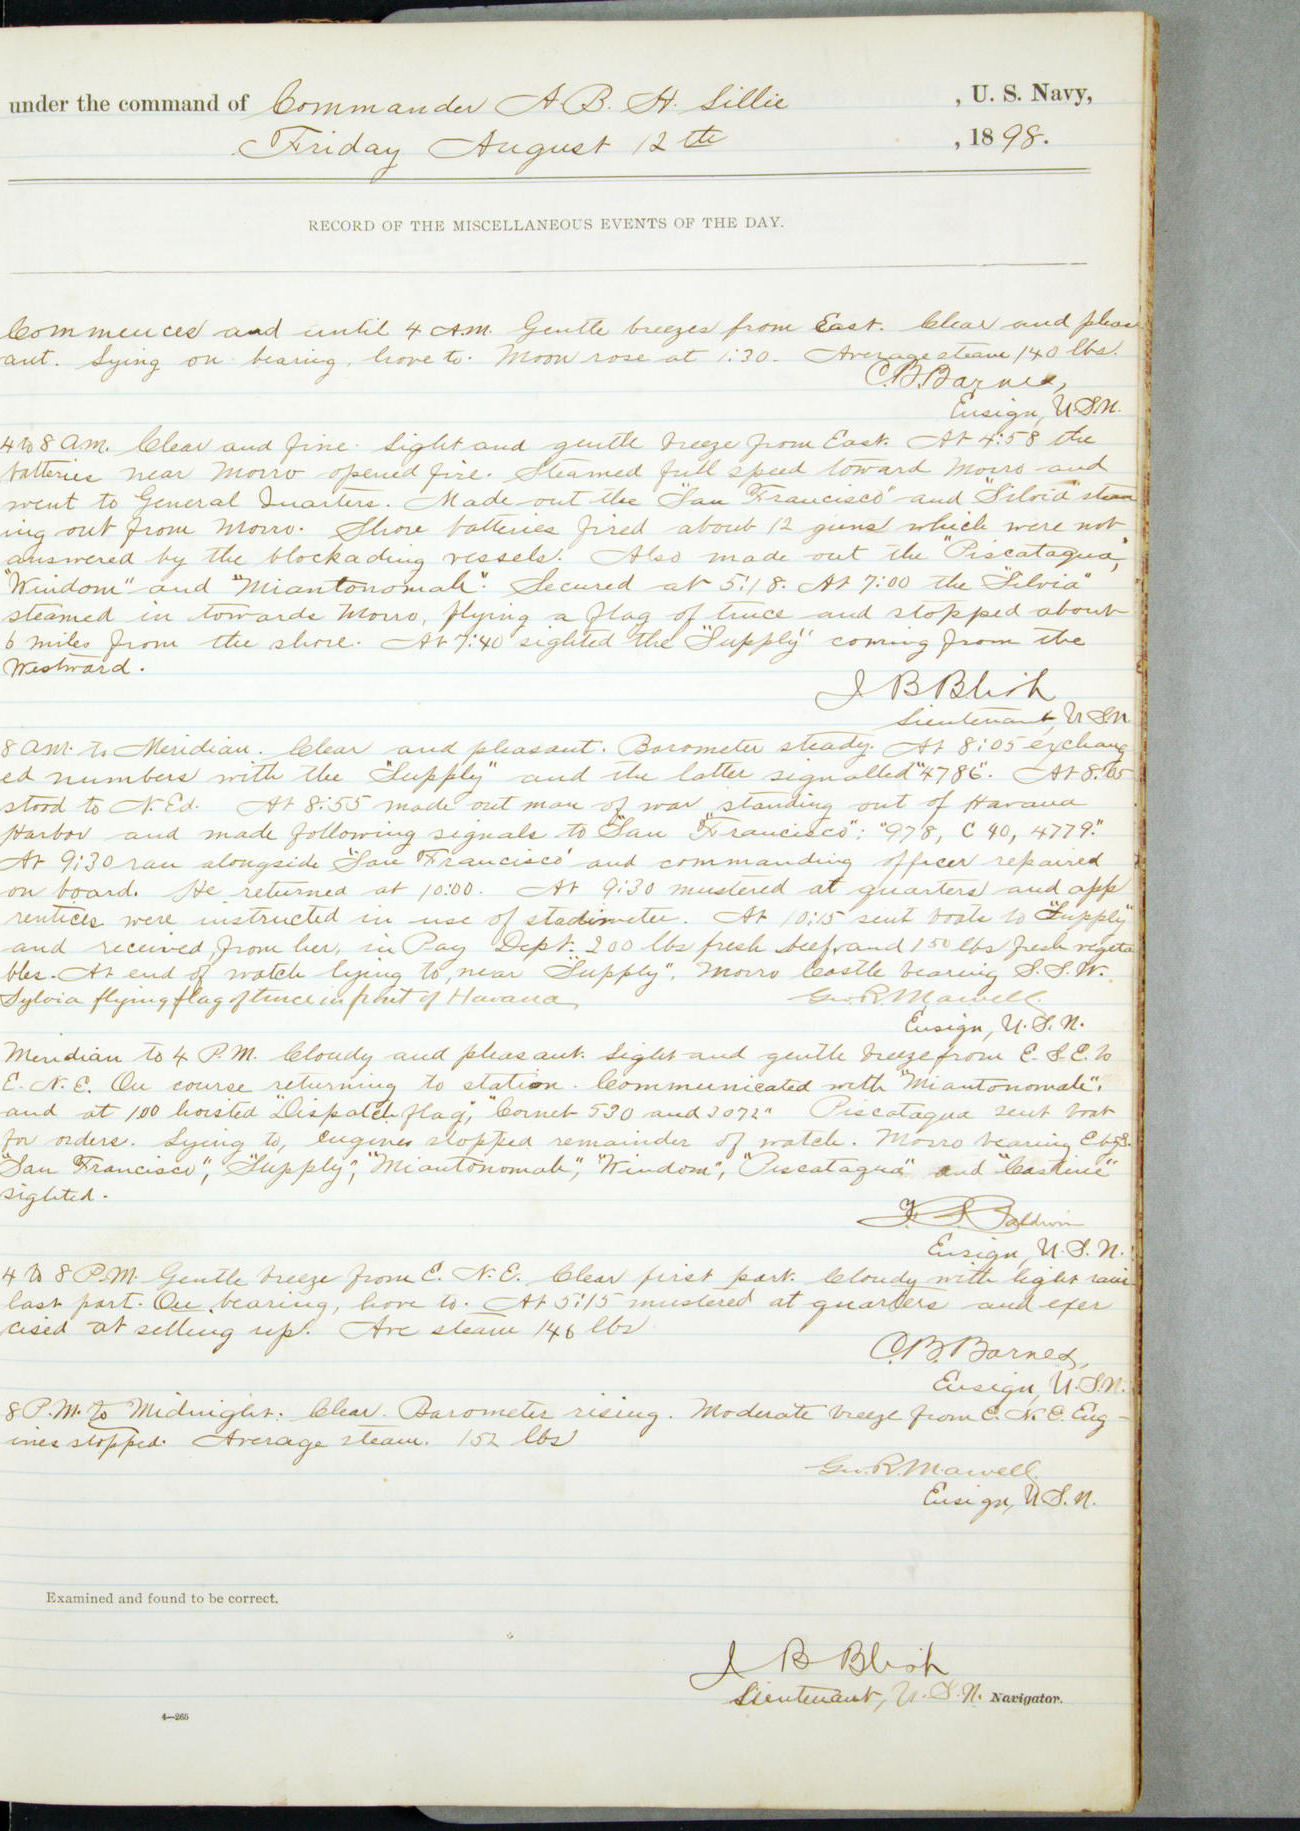 under the command of Commander A. B. H. Lillie , U. S. Navy,
Friday August 12th , 1898.
RECORD OF THE MISCELLANEOUS EVENTS OF THE DAY.
Commences and until 4 A.M. Gentle breezes from East. Clear and pleas
ant. Lying on bearing, hove to. Moon rose at 1:30. Average steam 140 lbs.
C.B. Barnes,
Ensign, U.S.N.
4 to 8 A.M. Clear and fine. Light and gentle breeze from East. At 4:58 the
batteries near Morro opened fire. Steamed full speed toward Morro and
went to General Quarters. Made out the "San Francisco" and "Silvia" steam
ing out from Morro. Shore batteries fired about 12 guns which were not
answered by the blockading vessels. Also made out the "Piscataqua",
"Windom" and "Miantonomah". Secured at 5:18. At 7:00 the "Silvia"
steamed in towards Morro, flying a flag of truce and stopped about
6 miles from the shore. At 7:40 sighted the "Supply" coming from the
Westward.
J B Blish
Lieutenant, U.S.N.
8 A.M. to Meridian. Clear and pleasant. Barometer steady. At 8:05 exchang
ed numbers with the "Supply" and the latter signalled "4786". At 8:05
stood to N.Ed. At 8:55 made out man of war standing out of Havana
Harbor and made following signals to "San Francisco": "978, C 40, 4779."
At 9:30 ran alongside "San Francisco" and commanding officer repaired
on board. He returned at 10:00. At 9:30 mustered at quarters and app
rentices were instructed in use of stadimeter. At 10:15 sent boats to "Supply"
and received, from her, in Pay Dept. 200 lbs fresh beef, and 150 lbs fresh vegeta
bles. At end of watch lying to, near "Supply", Morro Castle bearing S.S.W.
Sylvia flying flag of truce in front of Havana,
Geo. R. Marvell.
Ensign, U.S.N.
Meridian to 4 P.M. Cloudy and pleasant. Light and gentle breeze from E.S.E. to
E.N.E. On course returning to station. Communicated with "Miantonomah",
and at 1:00 hoisted "Dispatch flag", "Cornet 530 and 3072" Piscataqua sent boat
for orders. Lying to, engines stopped remainder of watch. Morro bearing E by S.
"San Francisco", "Supply", "Miantonomah", "Windom", "Piscataqua" and "Castine"
sighted.
F. S. Baldwin
Ensign, U.S.N.
4 to 8 P.M. Gentle breeze from E.N.E. Clear first part. Cloudy with light rain
last part. On bearing, hove to. At 5:15 mustered at quarters and exer
cised at setting up. Ave steam 146 lbs
C.B. Barnes,
Ensign, U.S.N.
8 P.M. to Midnight. Clear. Barometer rising. Moderate breeze from E.N.E. Eng-
ines stopped. Average steam. 152 lbs
Geo. R. Marvell.
Ensign, U.S.N.
Examined and found to be correct.
J B Blish
Lieutenant, U.S.N. Navigator.
4—265